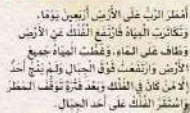 أَمْطَرَ الرَّبُّ عَلَى الأَرْضِ أَرْبَعِينَ يَوْمًا،
وَتَكَاثَرَتِ الْمِيَاهُ فَارْتَفَعَ الْفُلْكُ عَنِ الأَرْضِ
وَطَافَ عَلَى الْمَاءِ، وَغَطَّتِ الْمِيَاهُ جَمِيعَ
الأَرْضِ وَارْتَفَعَتْ فَوْقَ الْجِبَالِ وَلَمْ يَنْجُ أَحَدٌ
إِلاَّ مَنْ كَانَ فِي الْفُلْكِ وَبَعْدَ فَتْرَةٍ تَوَقَّفَ الْمَطَرُ
وَاسْتَقَرَّ الْفُلْكُ عَلَى أَحَدِ الْجِبَالِ.